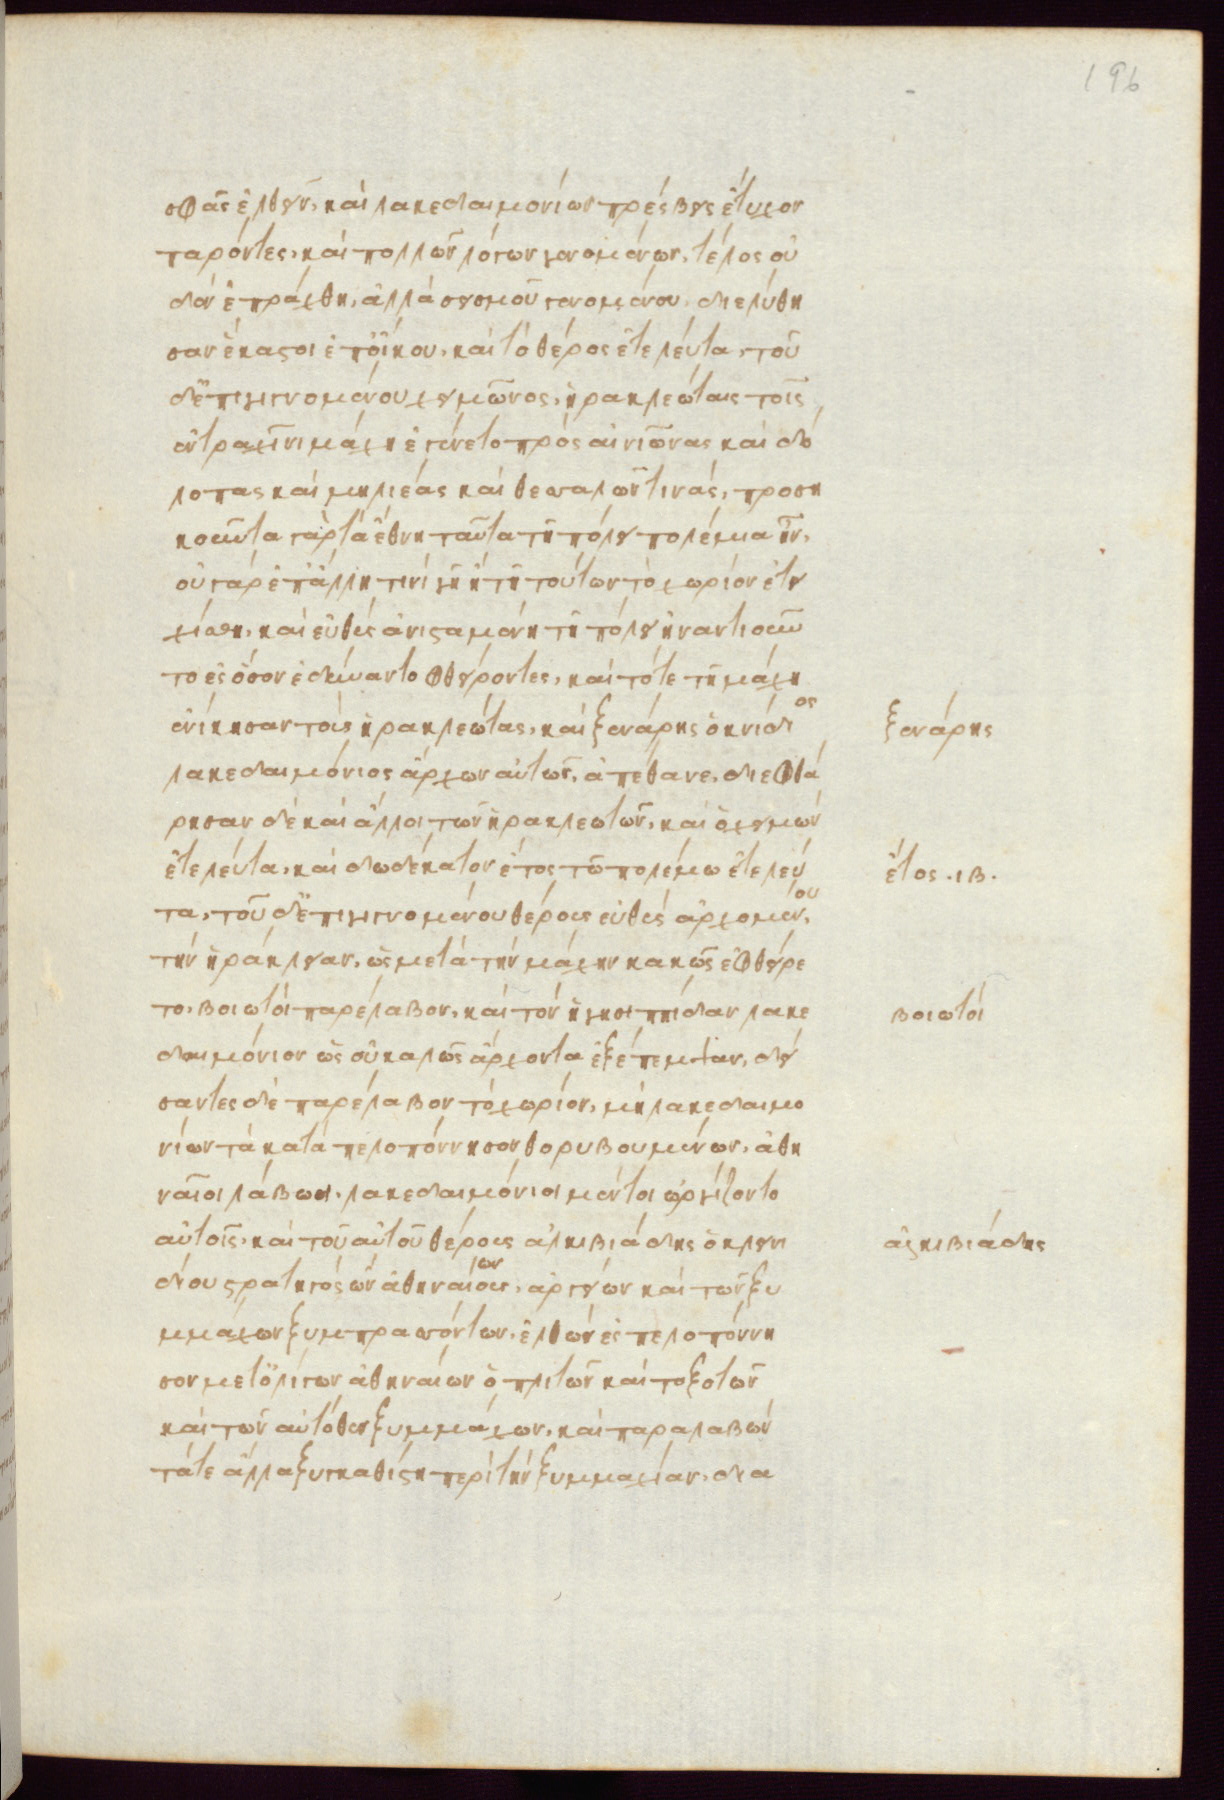 196
σφᾶς ἐλθεῖν, καὶ λακεδαιμονίων πρέσβεις ἔτυχον
παρόντες, καὶ πολλῶν λόγων γενομένων, τέλος οὐ
δὲν ἐπράχθη, ἀλλὰ σεισμοῦ γενομένου, διελύθη
σαν ἕκαστοι ἐπ' οἴκου, καὶ τὸ θέρος ἐτελεύτα, τοῦ
δ' ἐπιγιγνομένου χειμῶνος, ἡρακλεώταις τοῖς
ἐν τραχῖνι μάχη ἐγένετο πρὸς αἰνιᾶνας καὶ δό
λοπας καὶ μηλιέας καὶ θεσσαλῶν τινάς, προσοι
κοῦντα γὰρ τὰ ἔθνη ταῦτα τῇ πόλει πολέμια ἦν,
οὐ γὰρ ἐπ' ἄλλη τινὶ γῇ ἢ τῇ τούτων τὸ χωρίον ἐτει
χίσθη, καὶ εὐθὺς ἀνισταμένη τῇ πόλει ἠναντιοῦν
το ἐς ὅσον ἐδύναντο φθείροντες, καὶ τότε τῇ μάχη
ἐνίκησαν τοὺς ἡρακλεώτας, καὶ ξενάρης ὁ κνίδιος
ξενάρης
λακεδαιμόνιος ἄρχων αὐτῶν, ἀπέθανε, διεφθά
ρησαν δὲ καὶ ἄλλοι τῶν ἡρακλεωτῶν, καὶ ὁ χειμὼν
ἐτελεύτα, καὶ δωδέκατον ἔτος τῶ πολέμω ἐτελεύ
ἔτος .ιβ.
τα, τοῦ δ' ἐπιγιγνομένου θέρους εὐθὺς ἀρχομένου,
τὴν ἡράκλειαν, ὡς μετὰ τὴν μάχην κακῶς ἐφθείρε
το, βοιωτοὶ παρέλαβον, καὶ τὸν ἡγησιππίδαν λακε
βοιωτοί
δαιμόνιον ὡς οὐ καλῶς ἄρχοντα ἐξέπεμψαν, δεί
σαντες δὲ παρέλαβον τὸ χωρίον, μὴ λακεδαιμο
νίων τὰ κατὰ πελοπόννησον θορυβουμένων, ἀθη
ναῖοι λάβωσι, λακεδαιμόνιοι μέντοι ὠργίζοντο
αὐτοῖς, καὶ τοῦ αὐτοῦ θέρους ἀλκιβιάδης ὁ κλεινι
ἀλκιβιάδης
δίου στρατηγὸς ὢν ἀθηναίοις ων, ἀργείων καὶ τῶν ξυ
μμάχων ξυμπρασσόντων, ἐλθὼν ἐς πελοπόννη
σον μετ' ὀλίγων ἀθηναίων ὁπλιτῶν καὶ τοξοτῶν
καὶ τῶν αὐτόθεν ξυμμάχων, καὶ παραλαβὼν
τά τε ἄλλα ξυγκαθίστη περὶ τὴν ξυμμαχίαν, δια